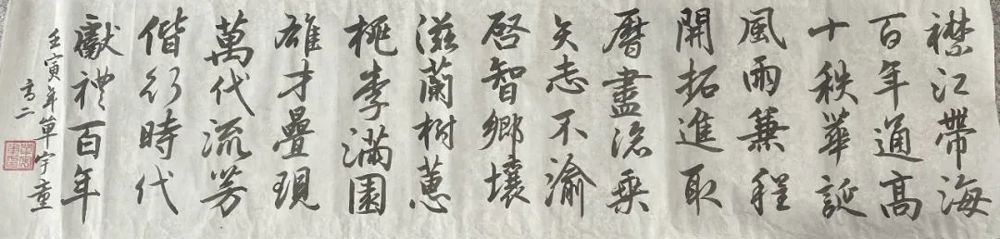 襟江帶海
百年通高
十秩華誕
風雨兼程
開拓進取
曆盡滄桒
矢志不渝
啓智鄉壤
滋蘭樹蕙
桃李滿園
雄才疊現
萬代流芳
偕行時代
獻禮百年
壬寅年單宇童
高二